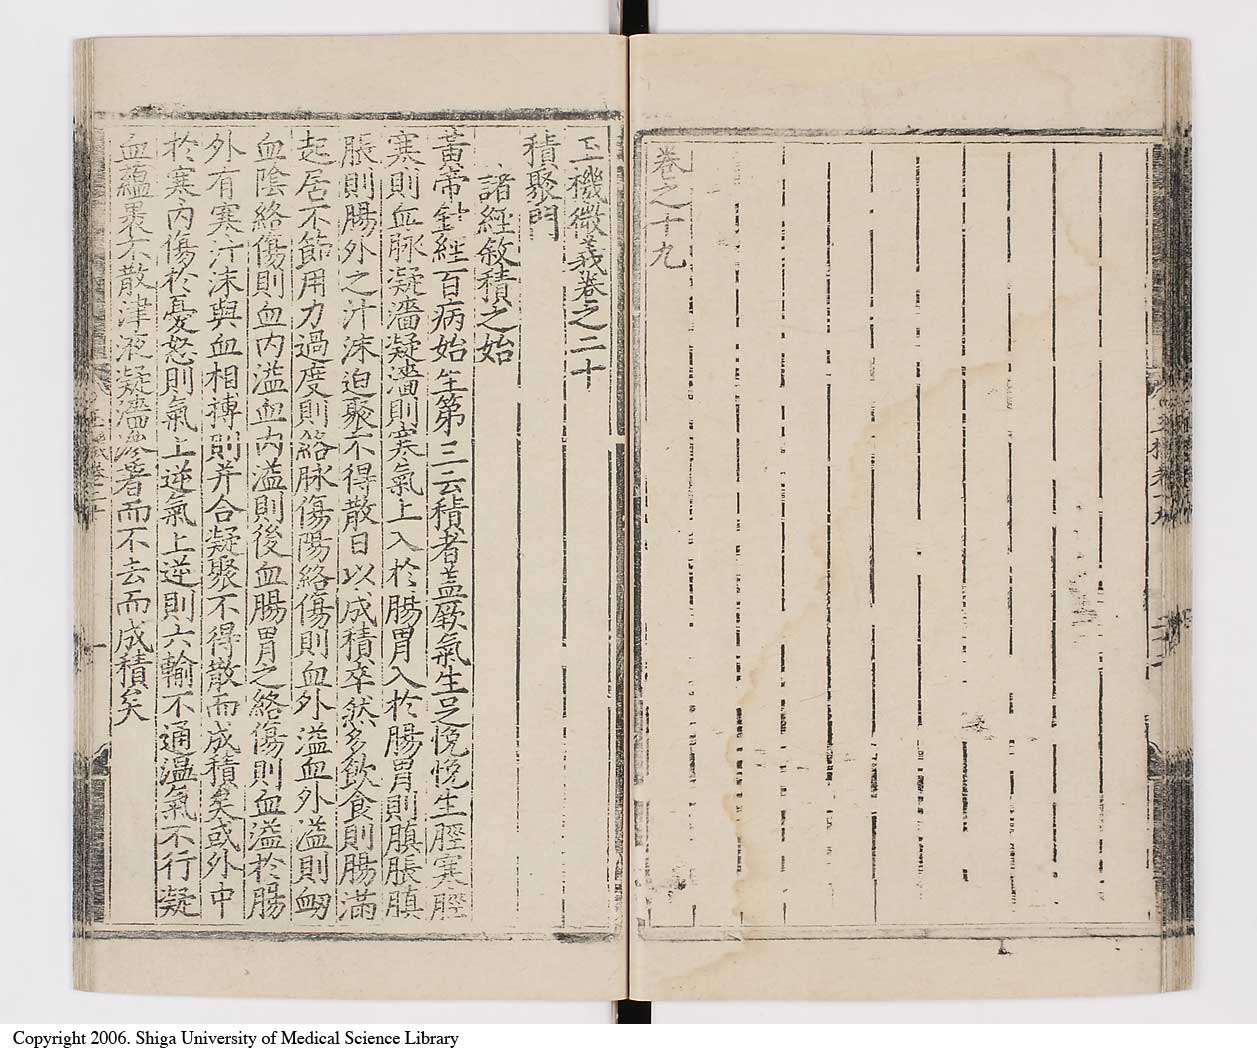 卷之十九
玉機微義卷之二十
積聚門
諸經敘積之始
黃帝鍼經百病始生第三云積者蓋厥氣生足悗悗生脛寒脛
寒則血脉凝濇凝濇則寒氣上入於腸胃入於腸胃則䐜脹䐜
脹則腸外之汁沫迫聚不得散日以成積卒然多飲食則腸滿
起居不節用力過度則絡脉傷陽絡傷則血外溢血外溢則衂
血陰絡傷則血內溢血內溢則後血腸胃之絡傷則血溢於腸
外有寒汁沫與血相搏則并合凝聚不得散而成積矣或外中
於寒內傷於憂怒則氣上逆氣上逆則六輸不通溫氣不行凝
血蘊裹不散津液凝濇滲著而不去而成積矣
Copyright 2006. Shiga University of Medical Science Library